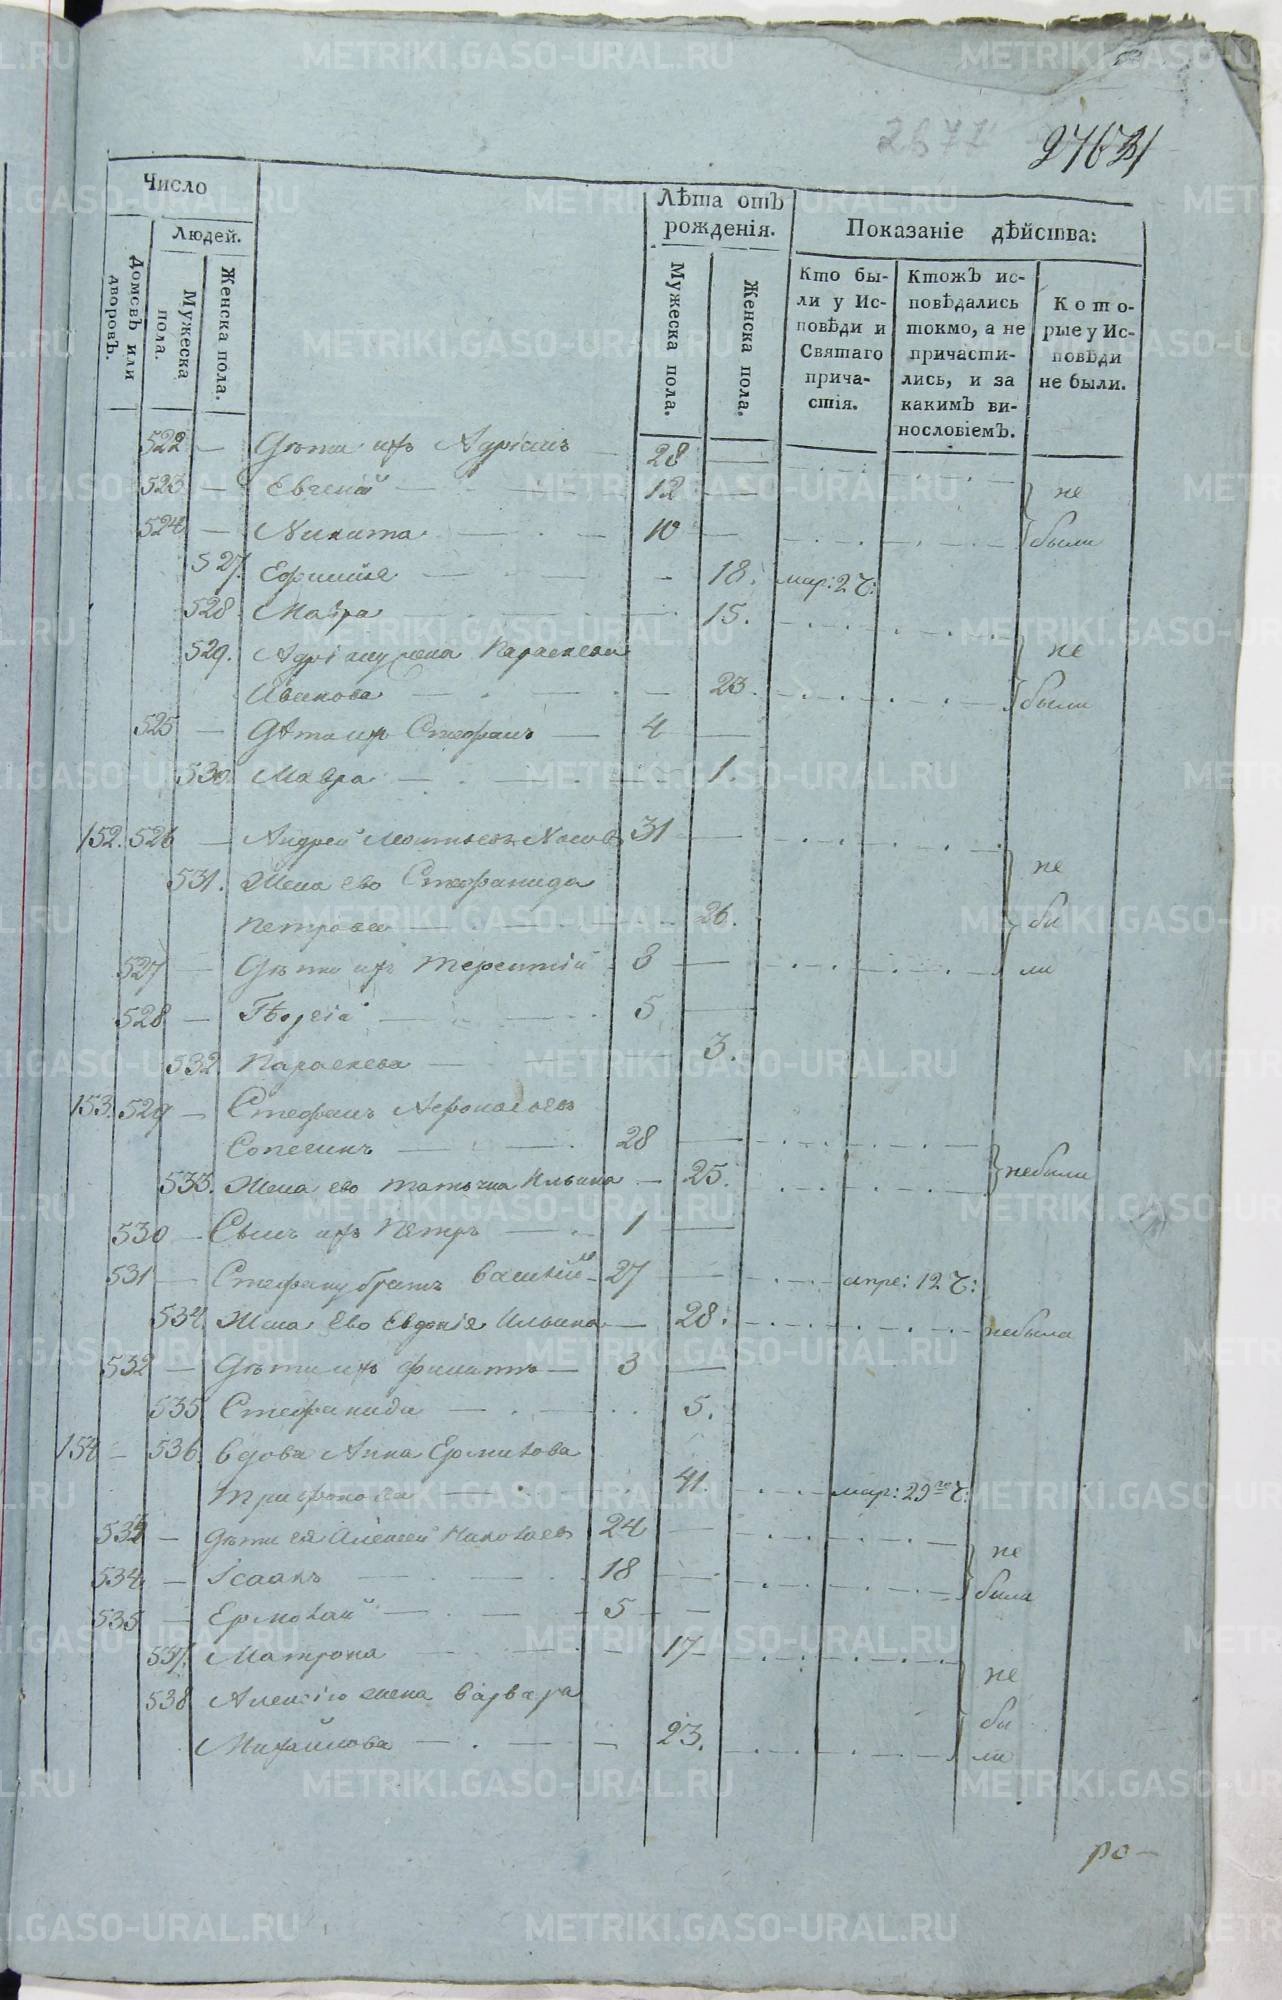 2671
Число
Людей.
Домовъ или дворовъ.
Мужеска пола.
Женска пола.
Лѣта отъ рожденія.
Мужеска пола.
Женска пола.
Показаніе дѣйства:
Кто были у Исповѣди и Святаго причастія.
Ктожъ исповѣдались токмо, а не причастились, и за какимъ винословіемъ.
Которые у Исповѣди не были.
522 — Дѣти ихъ Адріанъ — 28 —
523 — Евгеній — 12 — не
524 — Никита — 10 — были
527. Ефимия — 18. мар: 2 ч:
528. Мавра — 15.
529. Адріану жена Параскева не
Иванова — 23. были
525 — Дѣти ихъ Стефанъ — 4 —
530. Мавра — 1.
152. 526 — Андрей Леонтьевъ Носовъ 31 —
531. Жена ево Стефанида не
Петрова — 26. бы
527 — Дѣти ихъ Терентий 8 — ли
528 — Георгій — 5 —
532 Параскева — 3.
153. 529 — Стефанъ
28 —
533. Жена ево Татьяна Ильина — 25. небыли
530 — Сынъ ихъ Петръ — 1 —
531 — Стефану братъ Василий — 27 — апре: 12 ч:
534. Жена Ево Евдокія Ильина — 28. небыла
532 — Дѣти ихъ Филатъ — 3 —
535. Стефанида — 5.
154 — 536. Вдова Анна Ермикова
Трифонова — 41. мар: 29го ч:
533 — Дѣти ея Алексей 24 — не
534 — Ісаакъ — 18 — были
535 — Ермолай — 5 —
537. Матрона — 17 — не
538 Алексію жена Варвара бы
Михайлова — 23. ли
ро-
METRIKI.GASO-URAL.RU